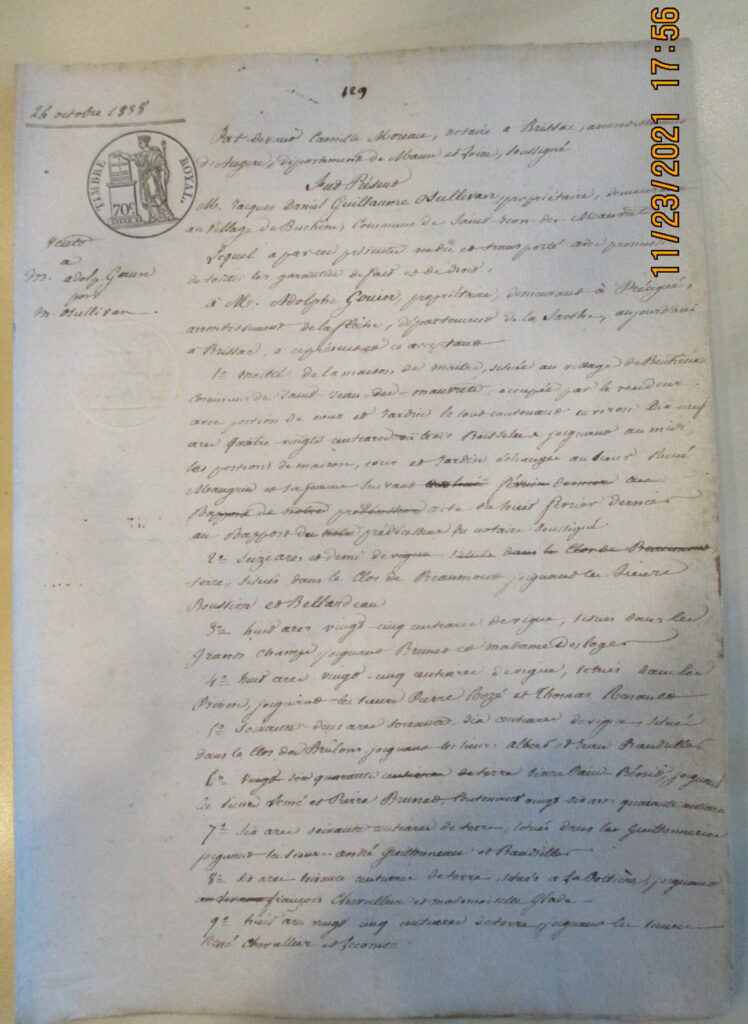 11/23/2021 17:56
129
26 octobre 1838
TIMBRE ROYAL.
70c
Vente
à
M. adolp. Gouin
par
M. Osullivan
Par devant Camille Moreau, notaire a Brissac, arrondissement
d'Angers, département de Maine et Loire, soussigné
fut Présent
M. Jacques Daniel Guillaume Osullivan, propriétaire, demeurant
au village de Buchêne, Commune de Saint-Jean-des-Mauvrets
Lequel a par ces présentes vendu et transporté avec promesse
de toutes les garanties de fait et de droit,
à M. Adolphe Gouin, propriétaire, demeurant à Précigné,
arrondissement de la flèche, département de la Sarthe, aujourd'hui
à Brissac, à ce présent et ce acceptant
1º moitié de la maison de maitre, située au village de Buchêne
commune de Saint-Jean-des-mauvrets, occupée par le vendeur
avec portion de cour et Jardin le tout contenant environ Dix neuf
ares quatre-vingts centiares ou trois Boisselées, joignant au midi,
les portions de maison, cour et Jardin échangés au sieur René
Maugrin et sa femme suivant février dernier au
Rapport de notre prédécesseur acte du huit février dernier
au Rapport du prédécesseur du notaire soussigné
2º Seize ares et demi de vigne située dans le Clos de Beaumont
terre, situés dans le Clos de Beaumont joignant les sieurs
Boussion et Bellardeau
3º huit ares vingt cinq centiares de vigne, situés dans les
Grands Champs, joignant Brunet et madame Desloges
4º huit ares vingt-cinq centiares de vigne, situés dans les
joignant les sieurs Pierre Rozé et Thomas Renault
5º Soixante deux ares soixante dix centiares de vigne, situés
dans le Clos des Brûlons, joignant les sieurs Albert et Jean Baudriller
6º vingt six quarante centiares de terre joignant
les sieurs et Pierre Brunet, contenant vingt six ares quarante centiares
7º six ares soixante centiares de terre, situés dans les Guittonneries
joignant les sieurs André Guittonneau et Baudriller
8º six ares soixante centiares de terre situés a la joignant
françois Chevallier et mademoiselle
9º huit ares vingt cinq centiares de terre, joignant les sieurs
René Chevallier et Lecomte